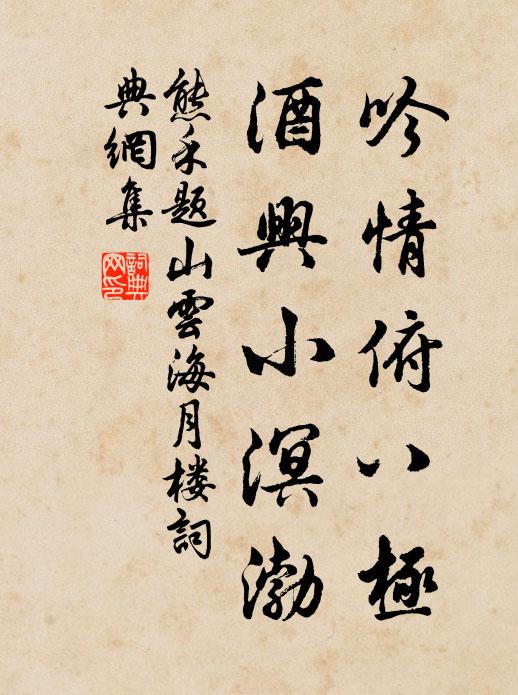 吟情俯八極
酒興小溟渤
熊禾題山雲海月楼詞
典網集
詞典網印